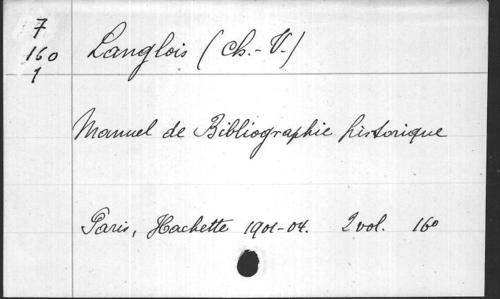 7
160
1
Langlois (Ch.-V.)
Manuel de Bibliographie historique
Paris, Hachette 1901-04. 2 vol. 16º